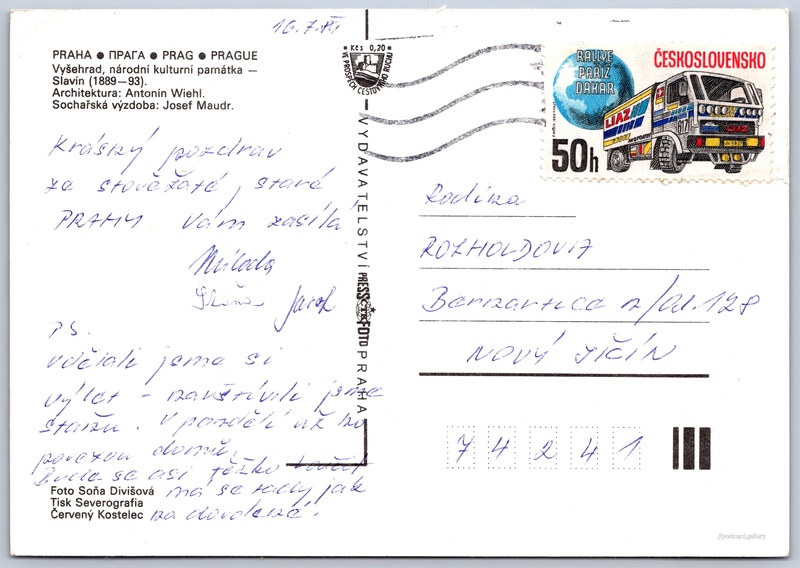 PRAHA ● ПРАГА ● PRAG ● PRAGUE
Vyšehrad, národní kulturní památka —
Slavín (1889—93).
Architektura: Antonín Wiehl.
Sochařská výzdoba: Josef Maudr.
16.7.
Kčs 0,20
VE PROSPĚCH CESTOVNÍHO RUCHU
RALLYE
PARIZ
DAKAR
ČESKOSLOVENSKO
LIAZ
LIAZ
50h
Krásný pozdrav
za stověžaté, staré
PRAHY Vám zasílá
Milada
Jarek
PS.
Udělali jsme si
výlet – navštívili jsme
. V pondělí už zo
domů.
Bude se asi těžko
má se tady jak
na dovolené.
VYDAVATELSTVÍ PRESSFOTO PRAHA
ČTK
Foto Soňa Divišová
Tisk Severografia
Červený Kostelec
Rodina
ROZHOLDOVI
Bernartice n/Od. 128
NOVÝ JIČÍN
74241
//postcard.gallery